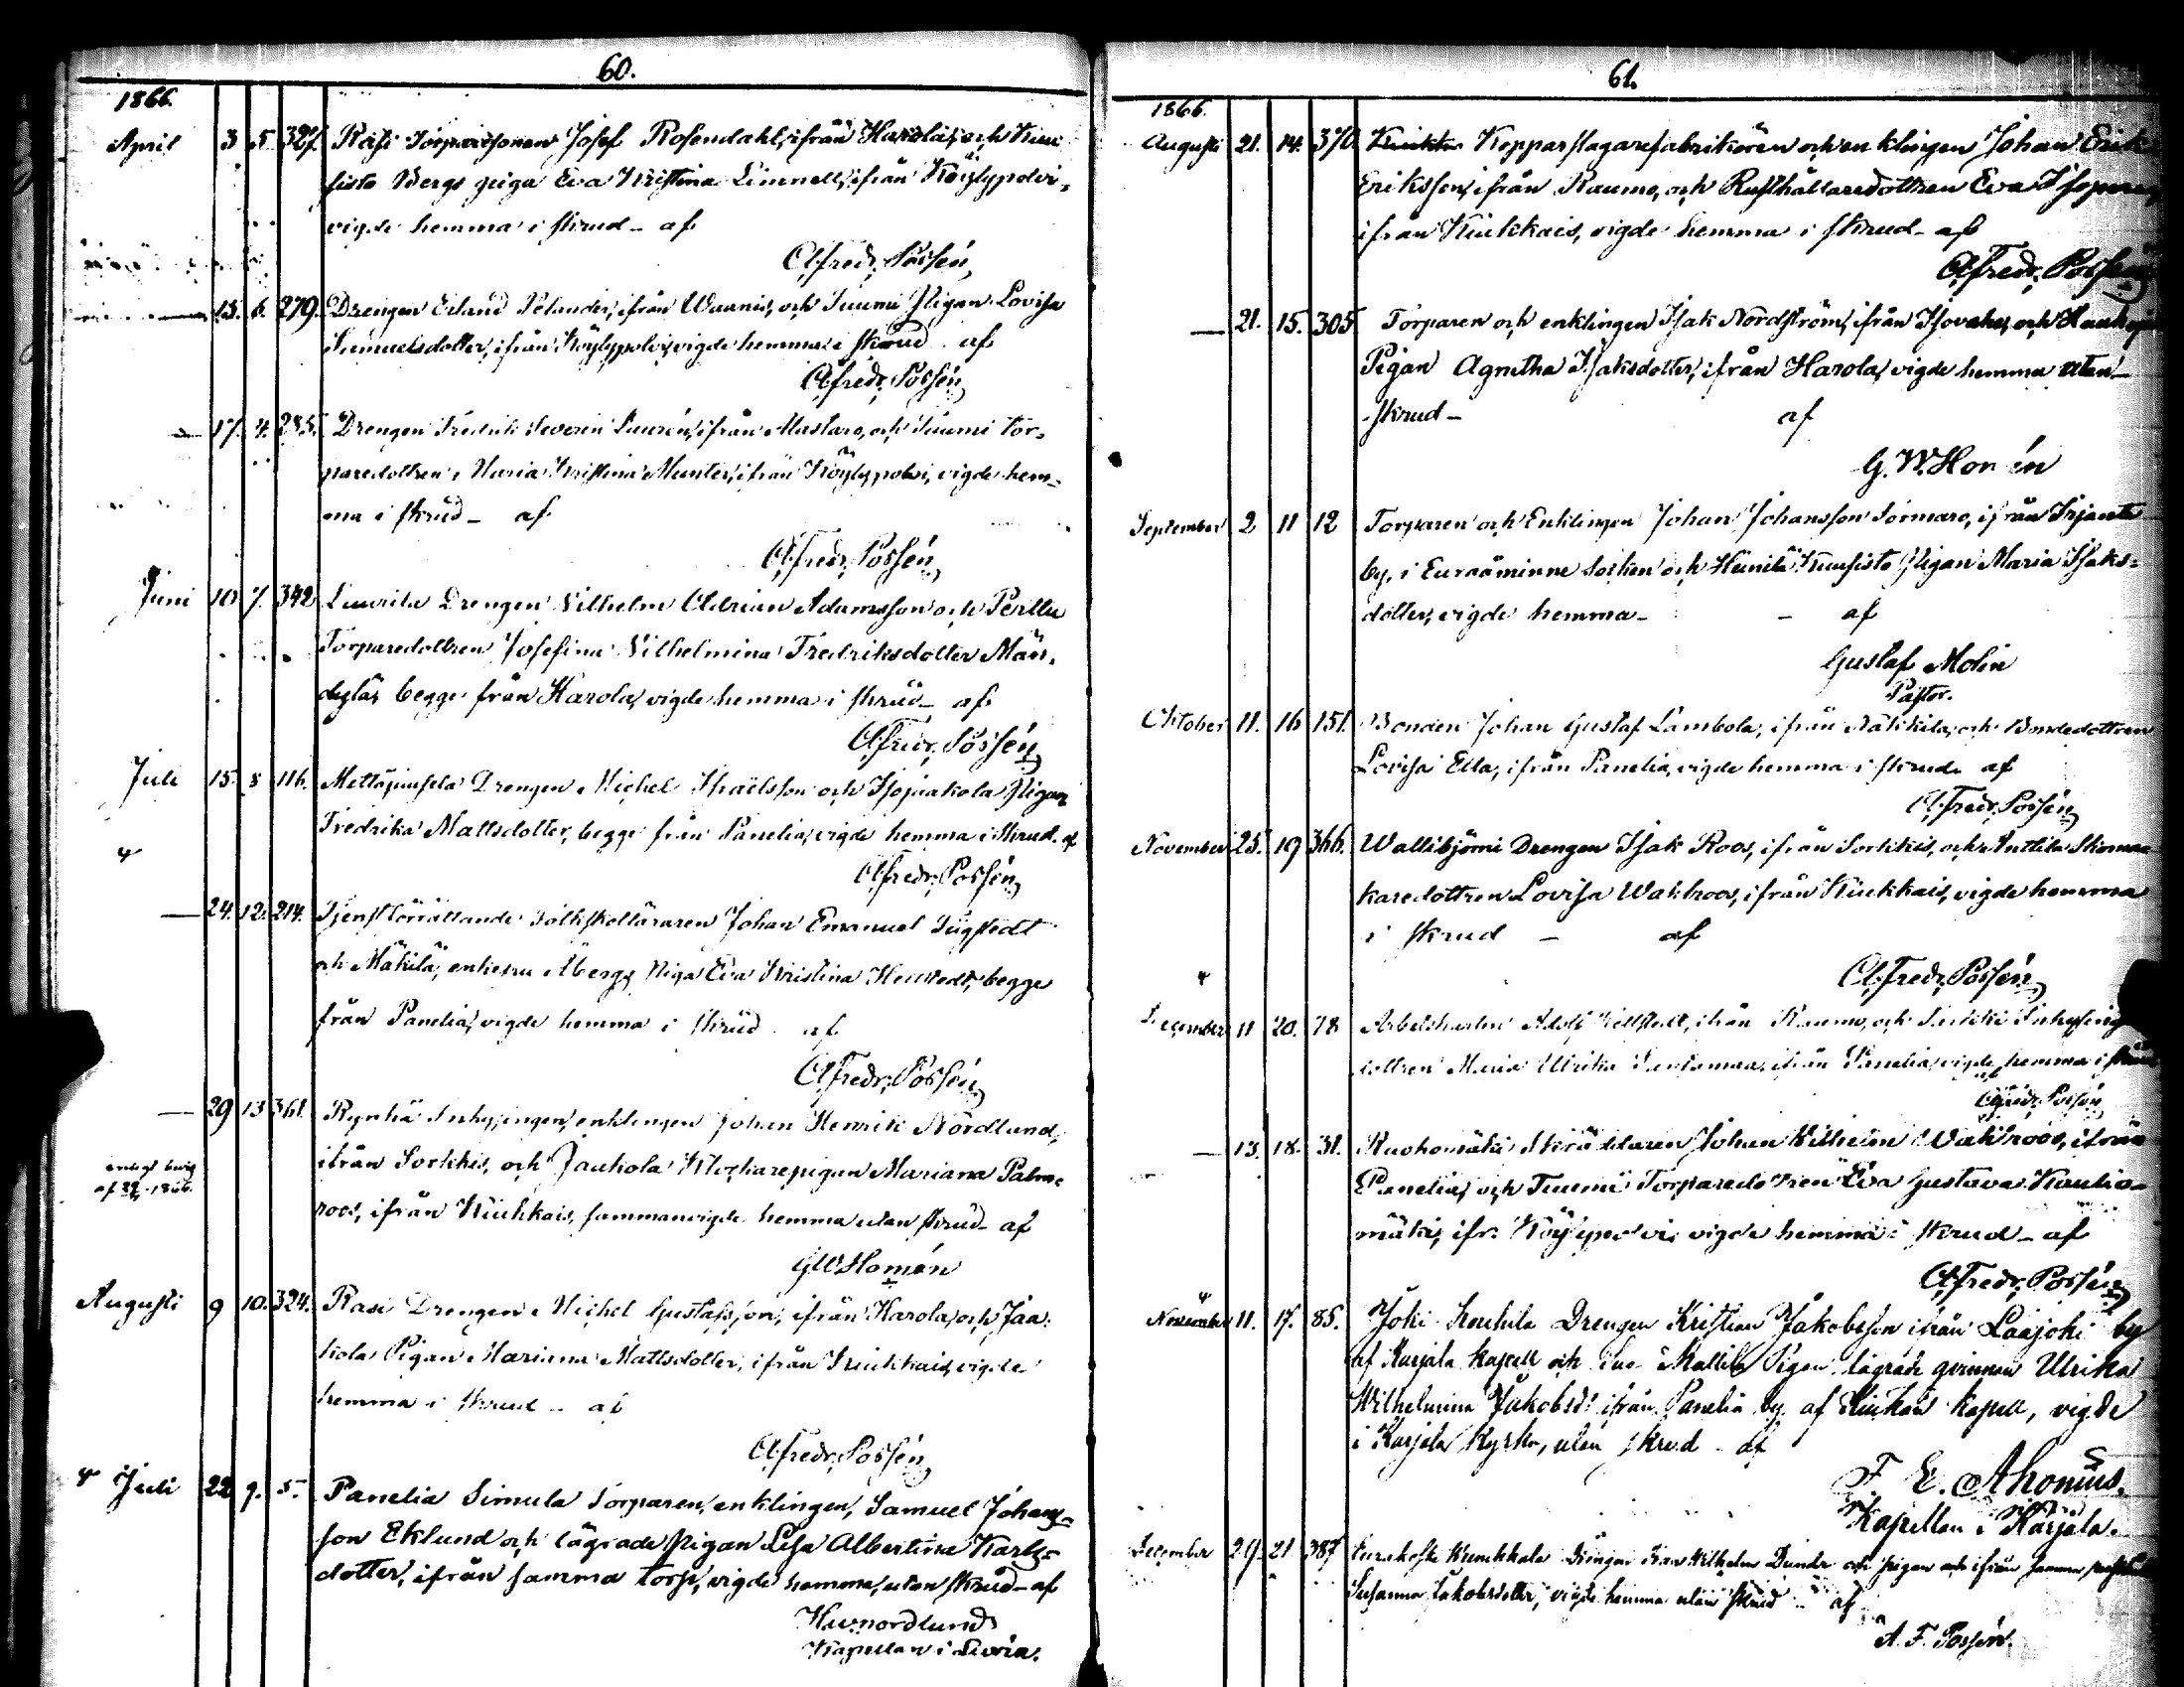 60.
1866.
April 3 5 327. Räsi Torparesonen Josef Rosendahl, ifrån Harola, och Kuu
sisto Bergs piga Eva Kristina Linnell, ifrån Köylypolvi,
vigde hemma i skrud – af
A. Fredr. Possén
13. 6. 279. Drengen Erland Pelander, ifrån Waanis, och Tuumi Pigan Lovisa
Samuelsdotter, ifrån Köylypolvi, vigde hemma i skrud af
A. Fredr. Possén
17. 4. 285. Drengen Fredrik Severin Laurén, ifrån Mastaro, och Tuumi tor-
paredottren Maria Kristina Munter, ifrån Köylypolvi, vigde hem-
ma i skrud – af
A. Fredr. Possén
Juni 10 7. 342 Laurila Drengen Vilhelm Adrian Adamsson och Perttu
Torparedottren Josefina Vilhelmina Fredriksdotter
begge från Harola, vigde hemma i skrud – af
A. Fredr. Possén
Juli 15. 8 116. Drengen Michel Israelsson och Isojaakola Pigan
Fredrika Mattsdotter, begge från Panelia, vigde hemma i skrud. af
A. Fredr. Possén
— 24. 12. 214. Tjenstförrättande Folkskolläraren Johan Emanuel
och Mäkilä, enkefru Åbergs Piga Eva Kristina begge
från Panelia, vigde hemma i skrud af
A. Fredr. Possén
— 29 13 361. Inhysingen, enklingen Johan Henrik Nordlund,
ifrån Sorkkis, och Jaakola Klockarepigan Mariana Palm-
roos, ifrån Kiukkais, sammanvigde hemma utan skrud – af
G W Homén
Augusti 9 10. 324. Rasi Drengen Michel Gustafsson, ifrån Harola, och Jaa-
kola Pigan Mariana Mattsdotter, ifrån Kiukkais, vigde
hemma i skrud – af
A. Fredr. Possén
Juli 22 9. 5. Panelia Simula Torparen, enklingen, Samuel Johans-
son Eklund och lägrade pigan Lisa Albertina Karls-
dotter, ifrån samma torp, vigde hemma, utan skrud – af
Nordlund
Kapellan i
61.
1866.
Augusti 21. 14. 370 Kopparslagarefabrikören och enklingen Johan Erik
Eriksson, ifrån Raumo, och Rusthållaredottren Eva
ifrån Kiukkais, vigde hemma i skrud – af
A. Fredr. Possén
— 21. 15. 305 Torparen och enklingen Isak Nordström, ifrån Isovahe, och
Pigan Agnetha Isaksdotter, ifrån Harola, vigde hemma utan
skrud – af
G. W. Homén
September 2 11 12 Torparen och Enklingen Johan Johansson Sormaro, ifrån Irjanto
by, i Euraåminne Socken och Kuusisto Pigan Maria Isaks-
dotter, vigde hemma – af
Gustaf Molin
Pastor.
Oktober 11. 16 151. Bonden Johan Gustaf Lambola, ifrån och Bondedottren
Lovisa Ella, ifrån Panelia, vigde hemma i skrud af
A. Fredr. Possén
November 25. 19 366. Wallibjörni Drengen Isak Roos, ifrån Sorkkis, och Anttila Skoma
karedottren Lovisa Wahlroos, ifrån Kiukkais, vigde hemma
i skrud – af
A. Fredr. Possén
December 11 20. 78 Adolf ifrån Raumo, och
dottren Maria Ulrika ifrån Panelia, vigde hemma i skrud
af
A. Fredr. Possén
— 13. 18. 31. Ruohomäki Skräddaren Johan Wilhelm Wahlroos, ifrån
Panelia, och Tuumi Torparedottren Eva Gustava
mäki, ifr. Köylypolvi, vigde hemma i skrud – af
A. Fredr. Possén
November 11. 17. 85. Drengen Kristian Jakobsson ifrån Laajoki by
af Karjala Kapell och Pigan lägrade qvinnan Ulrika
Wilhelmina Jakobsd. ifrån Panelia by af Kiukais Kapell, vigde
i Karjala Kyrka, utan skrud – af
F. E. Ahonius.
Kapellan i Karjala.
December 29. 21 387 Drengen Wilhelm och pigan ifrån samma
Susanna Jakobsdotter, vigde hemma utan skrud – af
A. F. Possén.